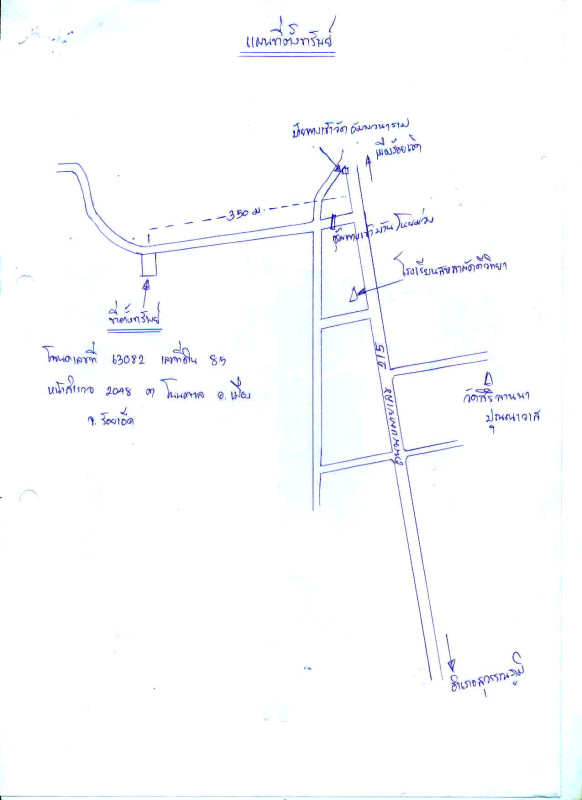 แผนที่ตั้งทรัพย์
ป้ายทางเข้าวัด อัมพวนาราม
เมืองร้อยเอ็ด
350 ม.
ซุ้มทางเข้าบ้านโนนม่วง
โรงเรียนสหสามัคคีวิทยา
ที่ตั้งทรัพย์
โฉนดเลขที่ 63082 เลขที่ดิน 85
หน้าสำรวจ 2098 ต โนนตาล อ.เมือง
จ.ร้อยเอ็ด
ถนนหมายเลข 215
วัดสิริลานนา
ปุณณาวาส
อำเภอสุวรรณภูมิ